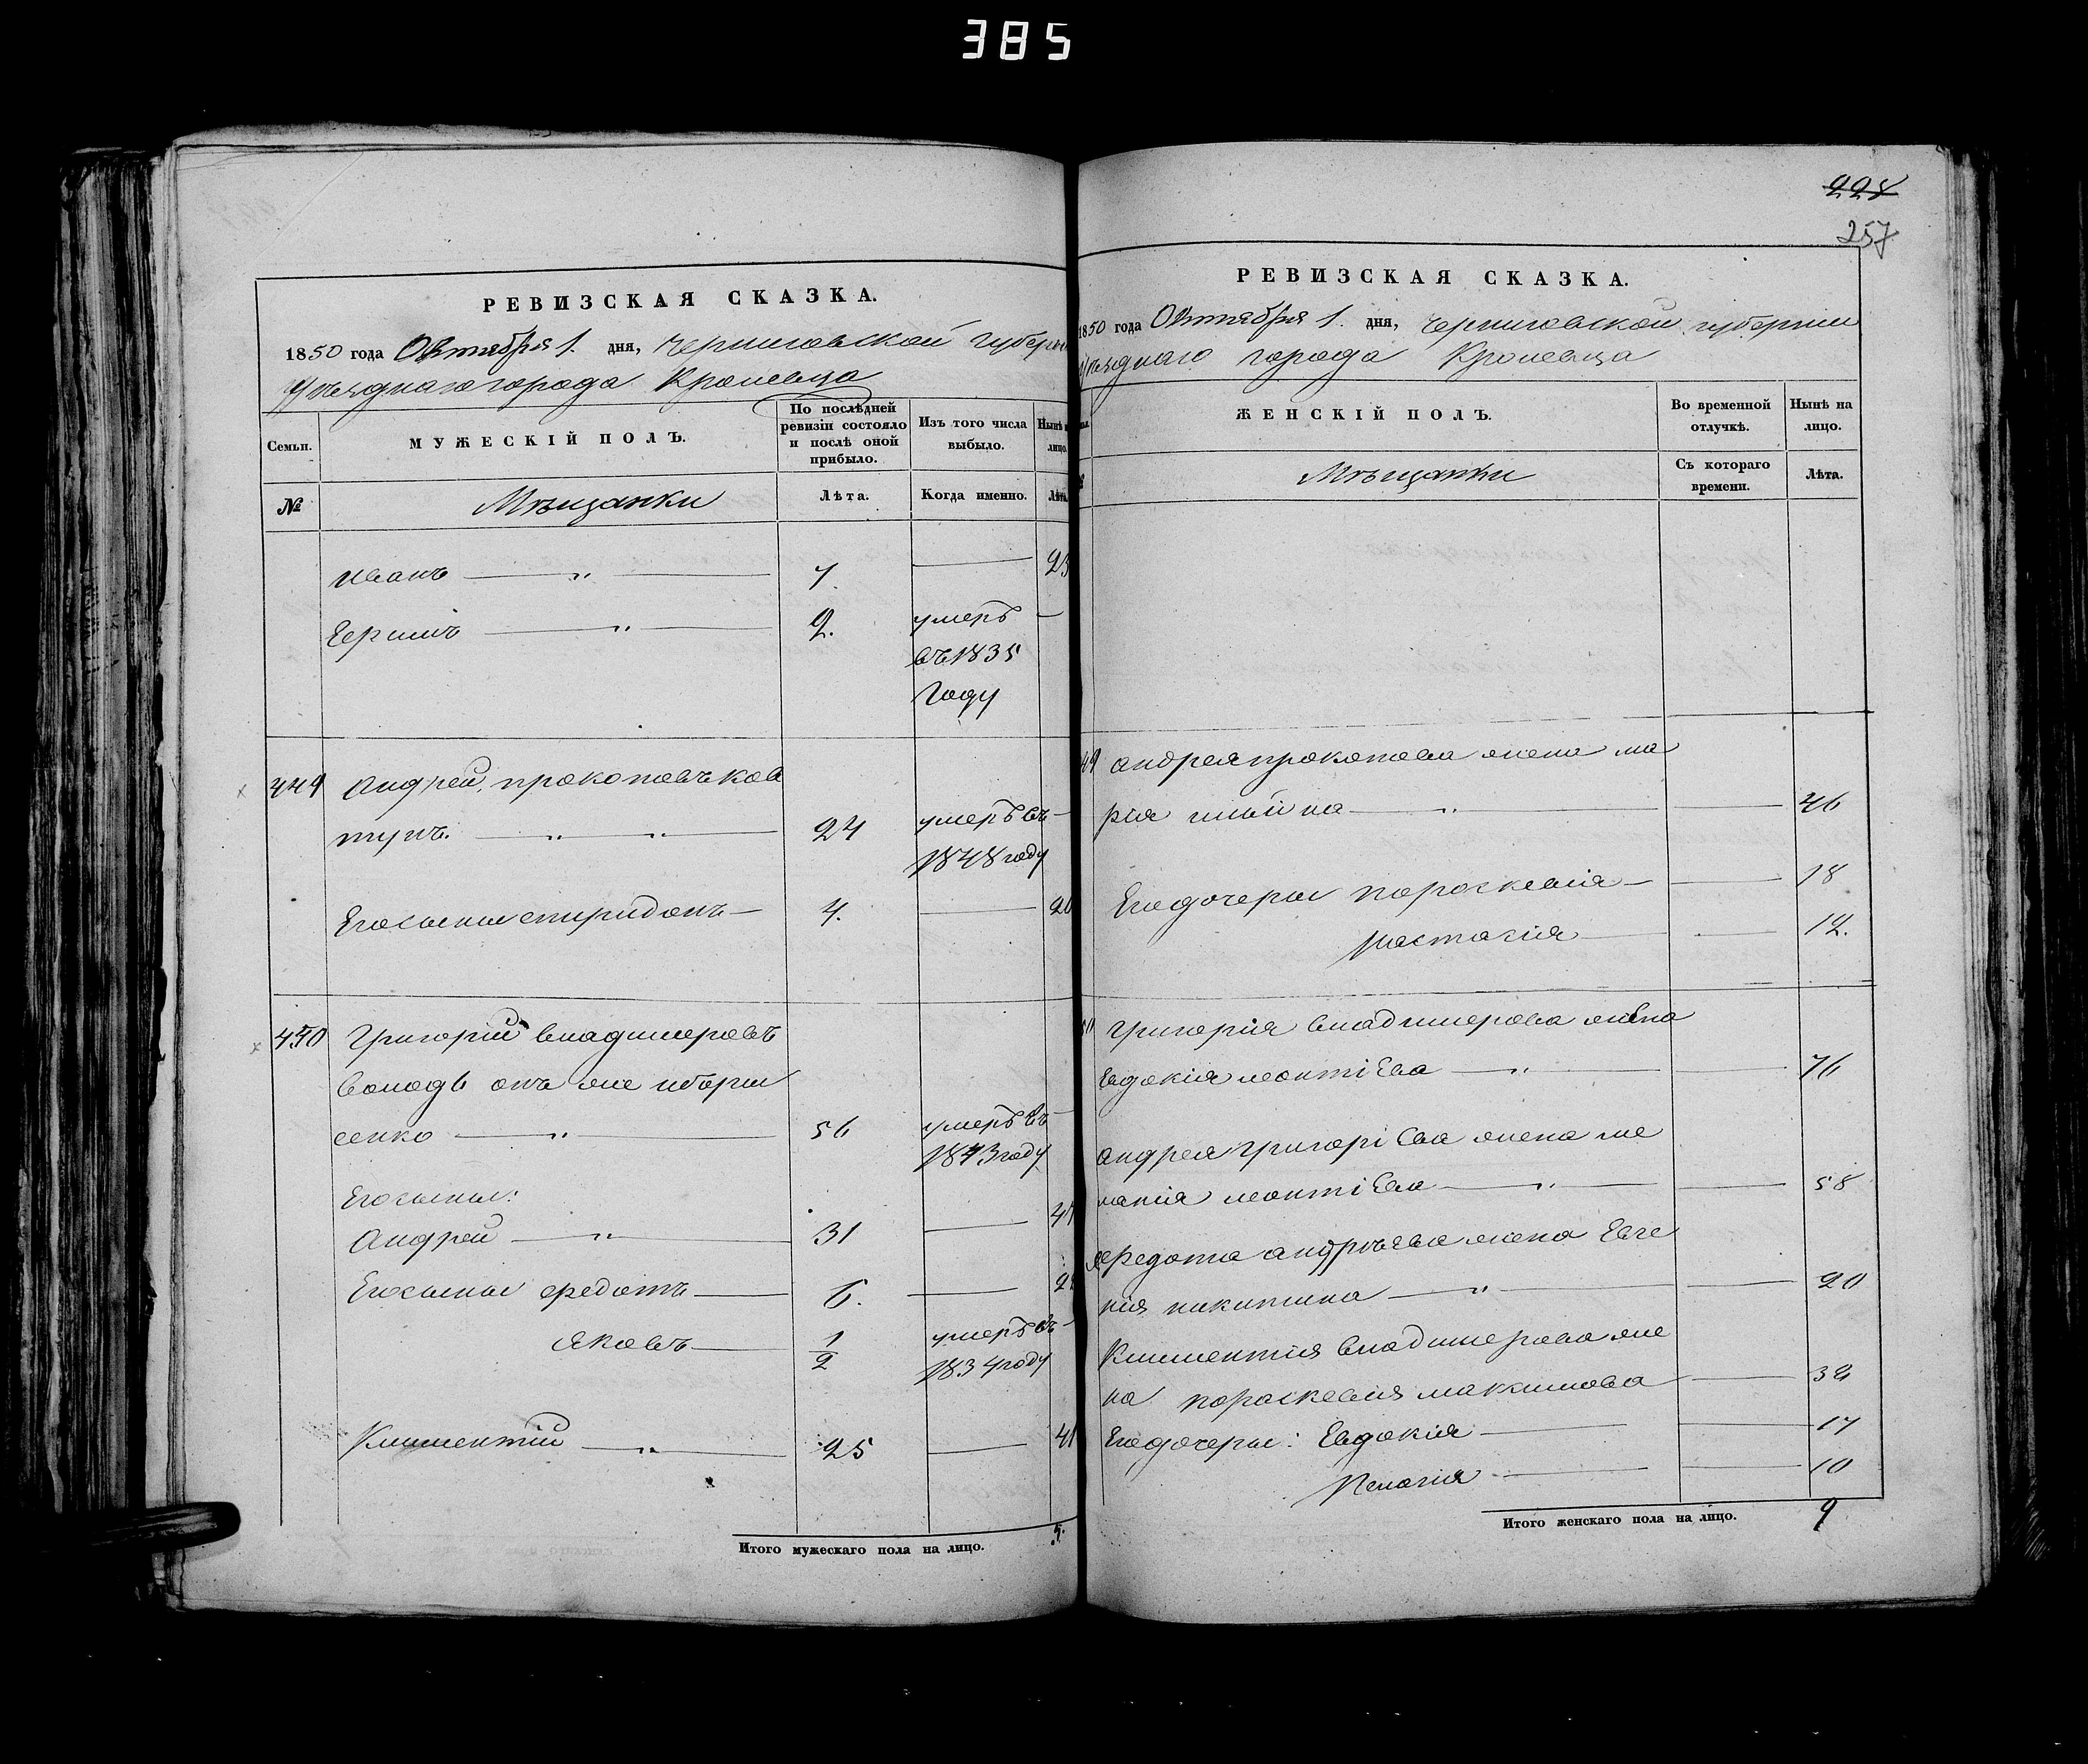 385
РЕВИЗСКАЯ СКАЗКА.
1850 года Октября 1. дня, Черниговской Губерн
Уѣзднаго города Кролевца
Семьи.
МУЖЕСКІЙ ПОЛЪ.
По послѣдней ревизіи состояло и послѣ оной прибыло.
Изъ того числа выбыло.
Нынѣ н лицо.
№
Мѣщанки
Лѣта.
Когда именно.
Лѣта.
Иванъ — „ — 7. — 23
2. умеръ —
въ 1835
Году
449 Андрей прокоповъ ков
тунъ. — „ — „ — 24 умеръ въ —
1848 году
Егосынъ спиридонъ — 4. — 20
450 Григорій владимеровъ
енко — „ — 56 умеръ въ —
1843 году
Егосыны:
Андрей — „ — 31 — 47
Егосыны федотъ — 6. — 22
Яковъ — 1/2 умеръ въ —
1834 году
Климентій — „ — 25 — 41
Итого мужескаго пола на лицо. 5.
228
257
РЕВИЗСКАЯ СКАЗКА.
1850 года Октября 1. дня, Черниговской губерніи
Уѣзднаго города Кролевца
ЖЕНСКІЙ ПОЛЪ.
Во временной отлучкѣ.
Нынѣ на лицо.
Мѣщанки
Съ котораго времени.
Лѣта.
49 андрея прокопова жена ма
рія ильина — „ — — 46
Егодочеры пороскевія — — 18
настасія — — 12.
50 григорія владимерова жена
Евдокія леонтіева — „ — — 76
андрея григоріева жена ме
ланія леонтіева — „ — — 58
федота андрѣева жена Евге
нія никитина — „ — — 20
Климентія владимерова же
на пораскевія максимова — 38
Егодочеры: Евдокія — — 17
Пелагія — — 10
Итого женскаго пола на лицо. 9